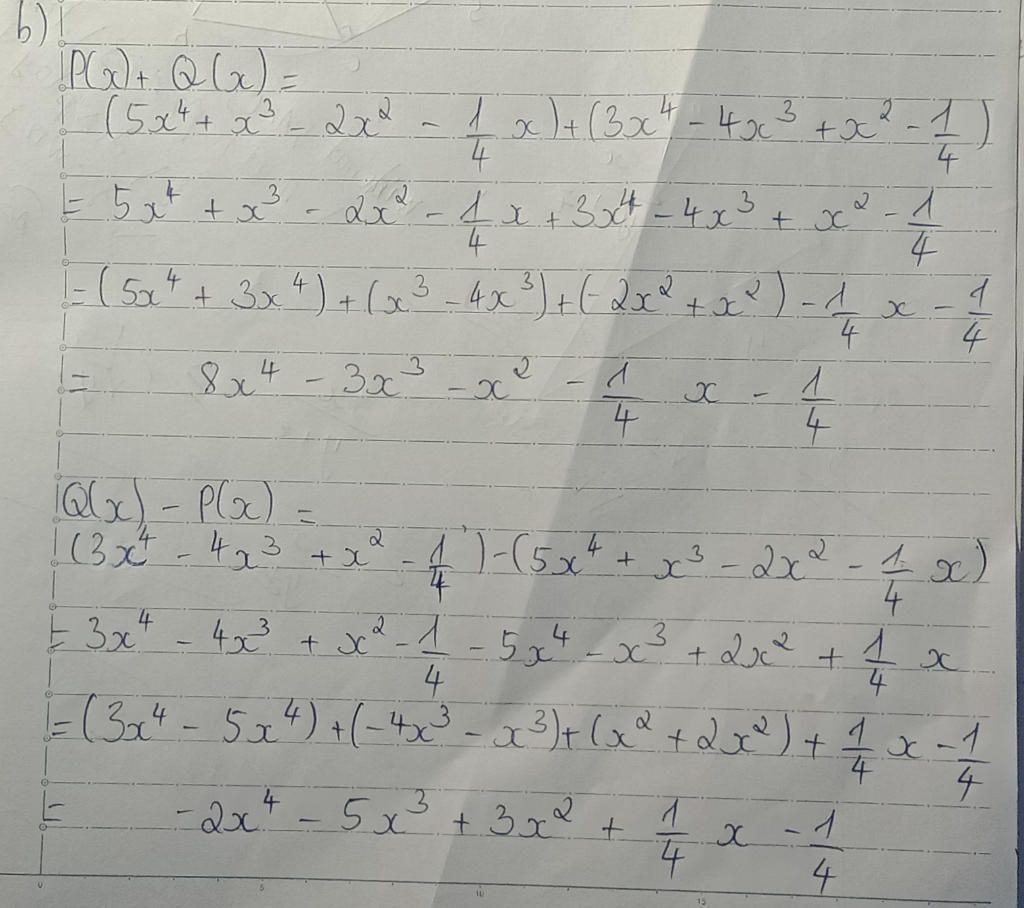 b)
P(x) + Q(x) =
(5x⁴ + x³ - 2x² - 1/4 x) + (3x⁴ - 4x³ + x² - 1/4)
= 5x⁴ + x³ - 2x² - 1/4 x + 3x⁴ - 4x³ + x² - 1/4
= (5x⁴ + 3x⁴) + (x³ - 4x³) + (-2x² + x²) - 1/4 x - 1/4
= 8x⁴ - 3x³ - x² - 1/4 x - 1/4
Q(x) - P(x) =
(3x⁴ - 4x³ + x² - 1/4) - (5x⁴ + x³ - 2x² - 1/4 x)
= 3x⁴ - 4x³ + x² - 1/4 - 5x⁴ - x³ + 2x² + 1/4 x
= (3x⁴ - 5x⁴) + (-4x³ - x³) + (x² + 2x²) + 1/4 x - 1/4
= -2x⁴ - 5x³ + 3x² + 1/4 x - 1/4
0 5 10 15